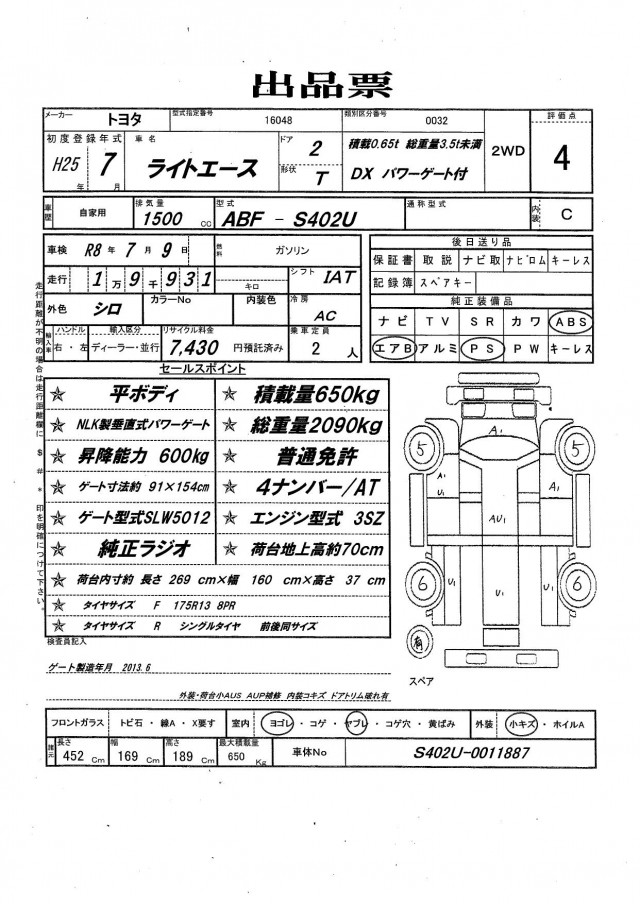 出品票
メーカー トヨタ 型式指定番号 16048 類別区分番号 0032 評価点
初度登録年式 H25年 7月 車名 ライトエース ドア 2 形状 T 積載0.65t 総重量3.5t未満 DX パワーゲート付 2WD 4
車歴 自家用 排気量 1500 cc 型式 ABF - S402U 通称型式 内装 C
車検 R8年 7月 9日 燃料 ガソリン
走行 1万9千931 キロ シフト IAT
外色 シロ カラーNo 内装色 冷房 AC
輸入車 ハンドル 右・左 輸入区分 ディーラー・並行 リサイクル料金 7,430 円預託済み 乗車定員 2人
後日送り品
保証書 取説 ナビ取 ナビロム キーレス
記録簿 スペアキー
純正装備品
ナビ TV SR カワ ABS
エアB アルミ PS PW キーレス
セールスポイント
☆ 平ボディ ☆ 積載量650kg
☆ NLK製垂直式パワーゲート ☆ 総重量2090kg
☆ 昇降能力 600kg ☆ 普通免許
☆ ゲート寸法約 91×154cm ☆ 4ナンバー/AT
☆ ゲート型式SLW5012 ☆ エンジン型式 3SZ
☆ 純正ラジオ ☆ 荷台地上高約70cm
☆ 荷台内寸約 長さ 269 cm×幅 160 cm×高さ 37 cm
☆ タイヤサイズ F 175R13 8PR
☆ タイヤサイズ R シングルタイヤ 前後同サイズ
走行距離が不明の場合は走行距離欄に $ # * 印を明確につけて下さい。
A1
5 5
A1 A1
U1
AU1
6 6
U1 U1 U1
有
スペア
検査員記入
ゲート製造年月 2013.6
外装・荷台小AUS AUP補修 内装コキズ ドアトリム破れ有
フロントガラス トビ石・線A・X要す 室内 ヨゴレ・コゲ・ヤブレ・コゲ穴・黄ばみ 外装 小キズ・ホイルA
諸元 長さ 452 Cm 幅 169 Cm 高さ 189 Cm 最大積載量 650 Kg 車体No S402U-0011887